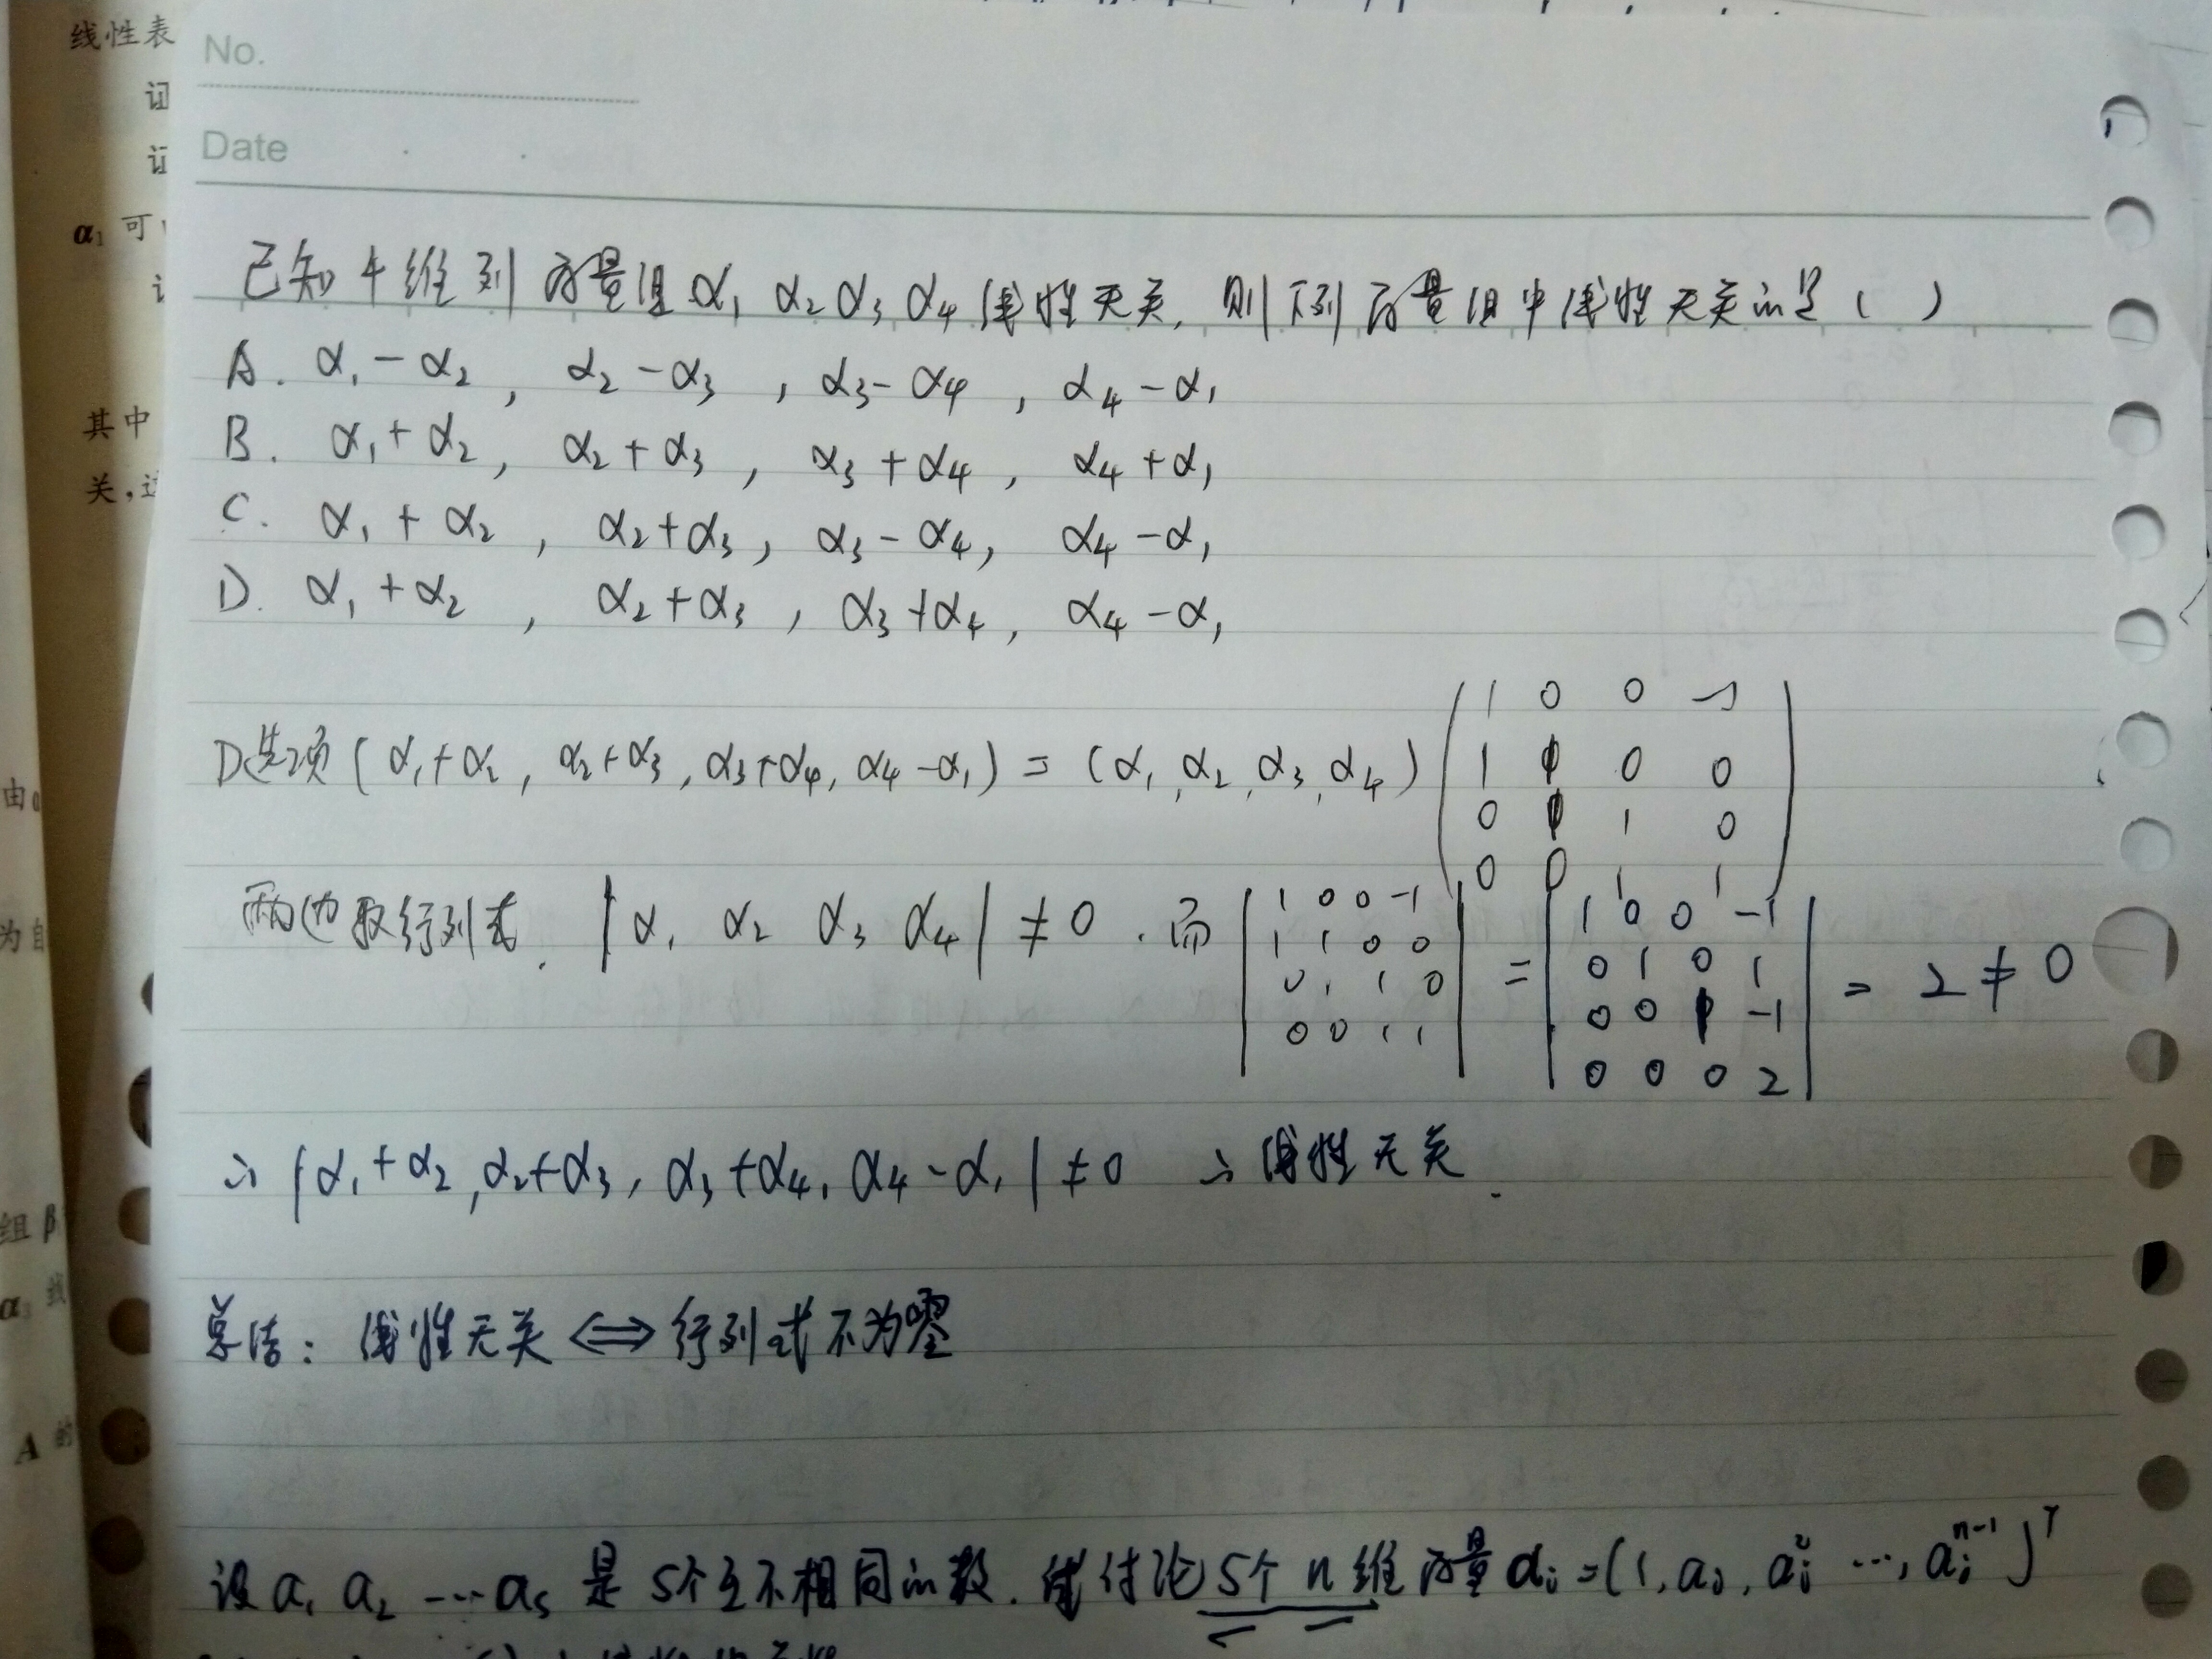 线性表
证
证
α₁ 可
其中
关,这
由α
为自
组β
α₃ 线
A 的
No.
Date
已知4维列向量组α₁ α₂ α₃ α₄ 线性无关, 则下列向量组中线性无关的是 ( )
A. α₁-α₂, α₂-α₃, α₃-α₄, α₄-α₁
B. α₁+α₂, α₂+α₃, α₃+α₄, α₄+α₁
C. α₁+α₂, α₂+α₃, α₃-α₄, α₄-α₁
D. α₁+α₂, α₂+α₃, α₃+α₄, α₄-α₁
D选项(α₁+α₂, α₂+α₃, α₃+α₄, α₄-α₁) = (α₁, α₂, α₃, α₄)
1 0 0 -1
1 1 0 0
0 1 1 0
0 0 1 1
两边取行列式. |α₁ α₂ α₃ α₄| ≠ 0. 而
1 0 0 -1
1 1 0 0
0 1 1 0
0 0 1 1
=
1 0 0 -1
0 1 0 1
0 0 1 -1
0 0 0 2
= 2 ≠ 0
∴ |α₁+α₂, α₂+α₃, α₃+α₄, α₄-α₁| ≠ 0 ∴ 线性无关.
总结: 线性无关 ⟺ 行列式不为零
设a₁ a₂ …aₛ 是 s个互不相同的数. 试讨论s个 n维向量αᵢ=(1, aᵢ, aᵢ² …, aᵢⁿ⁻¹)ᵀ